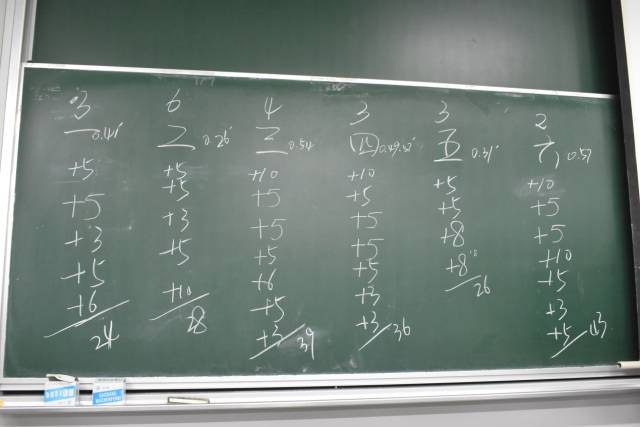 3
一 0.41"
+5
+5
+3
+5
+6
24
6
二 0.26"
+5
+5
+3
+5
+10
28
4
三 0.54
+10
+5
+5
+5
+6
+5
+3
39
3
四 0.49.52"
+10
+5
+5
+5
+5
+3
+3
36
3
五 0.31"
+5
+5
+8
+8
26
2
六 0.57
+10
+5
+5
+10
+5
+3
+5
43